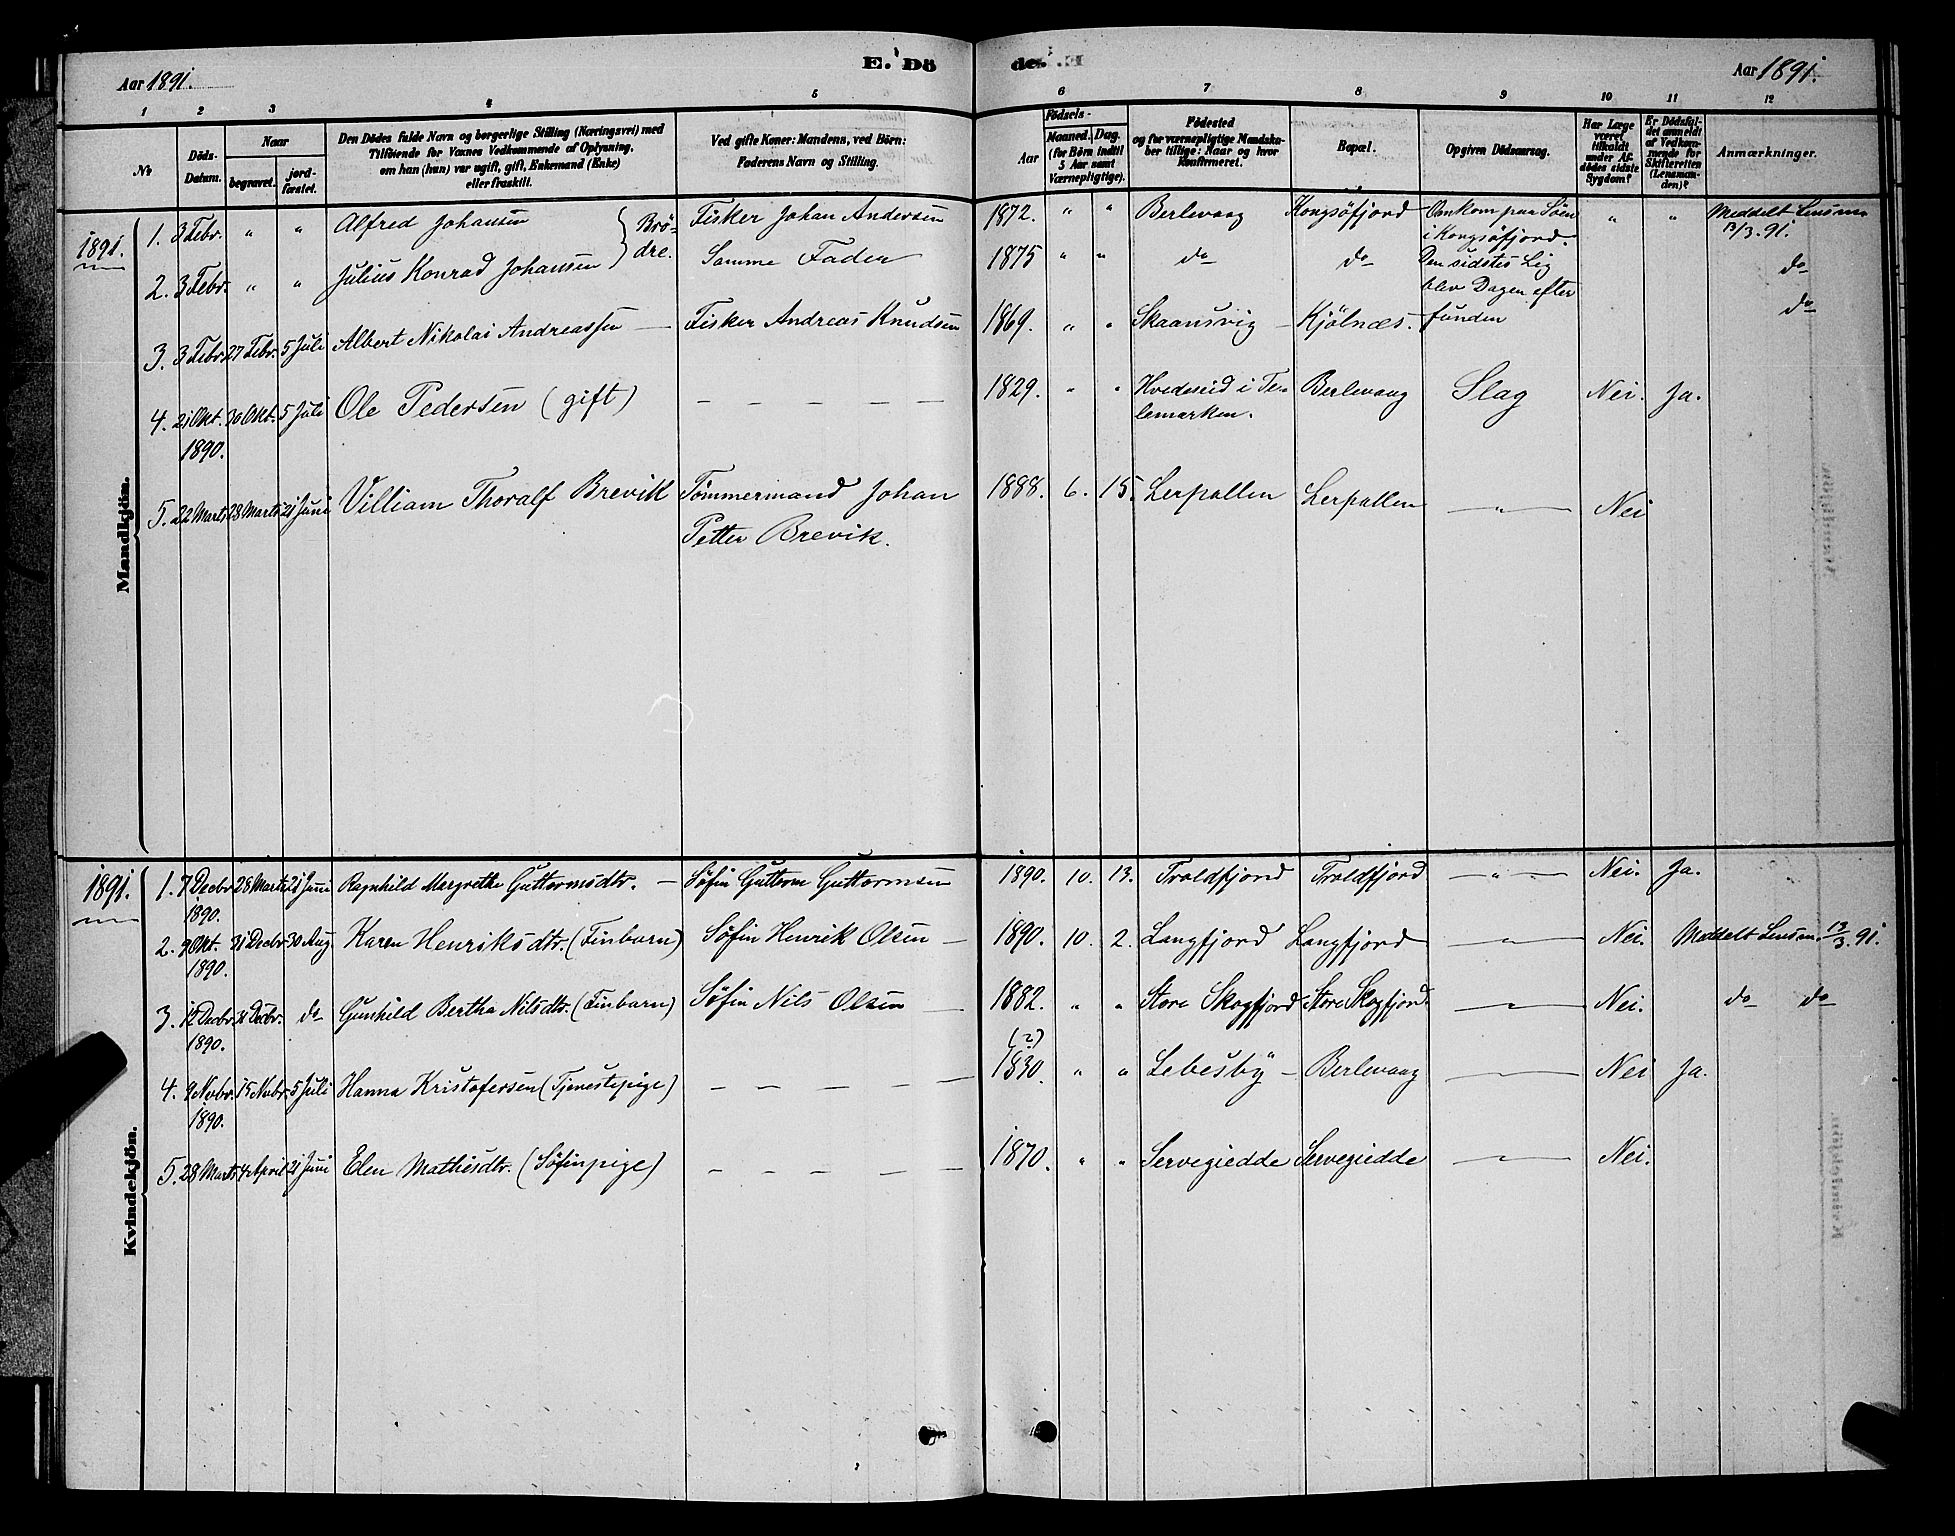 Aar 1891.
E. Dö
de.
Aar 1891.
1 2 3 4 5 6 7 8 9 10 11 12
№
Döds-Datum.
Naar
begravet.
jord-fæstet.
Den Dødes fulde Navn og borgerlige Stilling (Næringsvei) med
Tilføiende for Voxnes Vedkommende af Oplysning,
om han (hun) var ugift, gift, Enkemand (Enke)
eller fraskilt.
Ved gifte Koner: Mandens, ved Börn:
Faderens Navn og Stilling.
Fødsels-
Aar
Maaned. Dag.
(for Børn indtil
5 Aar samt
Værnepligtige).
Fødested
og for værnepligtige Mandska-
ber tillige: Naar og hvor
konfirmeret.
Bopæl.
Opgiven Dödsaarsag.
Har Læge
været
tilkaldt
under Af-
dødes sidste
Sygdom?
Er Dödsfal-
det anmeldt
af Vedkom-
mende for
Skifteretten
(Lensman-
den)?
Anmærkninger.
Mandkjön.
1891.
1. 3 Febr. " " Alfred Johansen } Brö- Fisker Johan Andersen 1872. " " Berlevaag Kongsöfjord Omkom paa Söen " " Meddelt Lensm.
i Kongsöfjord. 13/3. 91.
2. 3 Febr. " " Julius Konrad Johansen } dre. Samme Fader 1875 " " do do Den sidstes Lig do
blev Dagen efter
3. 3 Febr. 27 Febr. 5 Juli Albert Nikolai Andreassen — Fisker Andreas Knudsen 1869. " " Skaansvig – Kjölnæs. funden do
4. 21 Okt. 30 Okt. 5 Juli Ole Pedersen (gift) — — — — — 1829. " " Hvedeseid i Te- Berlevaag Slag Nei. Ja.
1890. lemarken.
5. 22 Marts 28 Marts 21 Juni Villiam Thoralf Brevik Tömmermand Johan 1888. 6. 15. Lerpollen Lerpollen — " — Nei
Petter Brevik.
Kvindekjön.
1891.
1. 7 Decbr. 28 Marts 21 Juni Ragnhild Margrethe Guttormsdtr. — Söfin Guttorm Guttormsen 1890. 10. 13. Troldfjord Troldfjord — " — Nei. Ja.
1890.
2. 9 Okt. 31 Decbr. 30 Aug. Karen Henriksdtr. (Finbarn) Söfin Henrik Olsen — 1890. 10. 2. Langfjord Langfjord — " — Nei. Meddelt Lensm. 13/3. 91.
1890.
3. 12 Decbr. 31 Decbr. do Gunhild Bertha Nilsdtr. (Finbarn) Söfin Nils Olsen — 1882. " " Store Skogfjord Store Skogfjord — " — Nei. do do
1890. (?)
4. 9 Novbr. 15 Novbr. 5 Juli Hanna Kristofersen (Tjenestepige) — — — — — 1830. " " Lebesby – Berlevaag — " — Nei Ja.
1890.
5. 28 Marts 4 April 21 Juni Elen Mathisdtr. (Söfinpige) — — — — — 1870. " " Servegiedde Servegiedde — " — Nei.